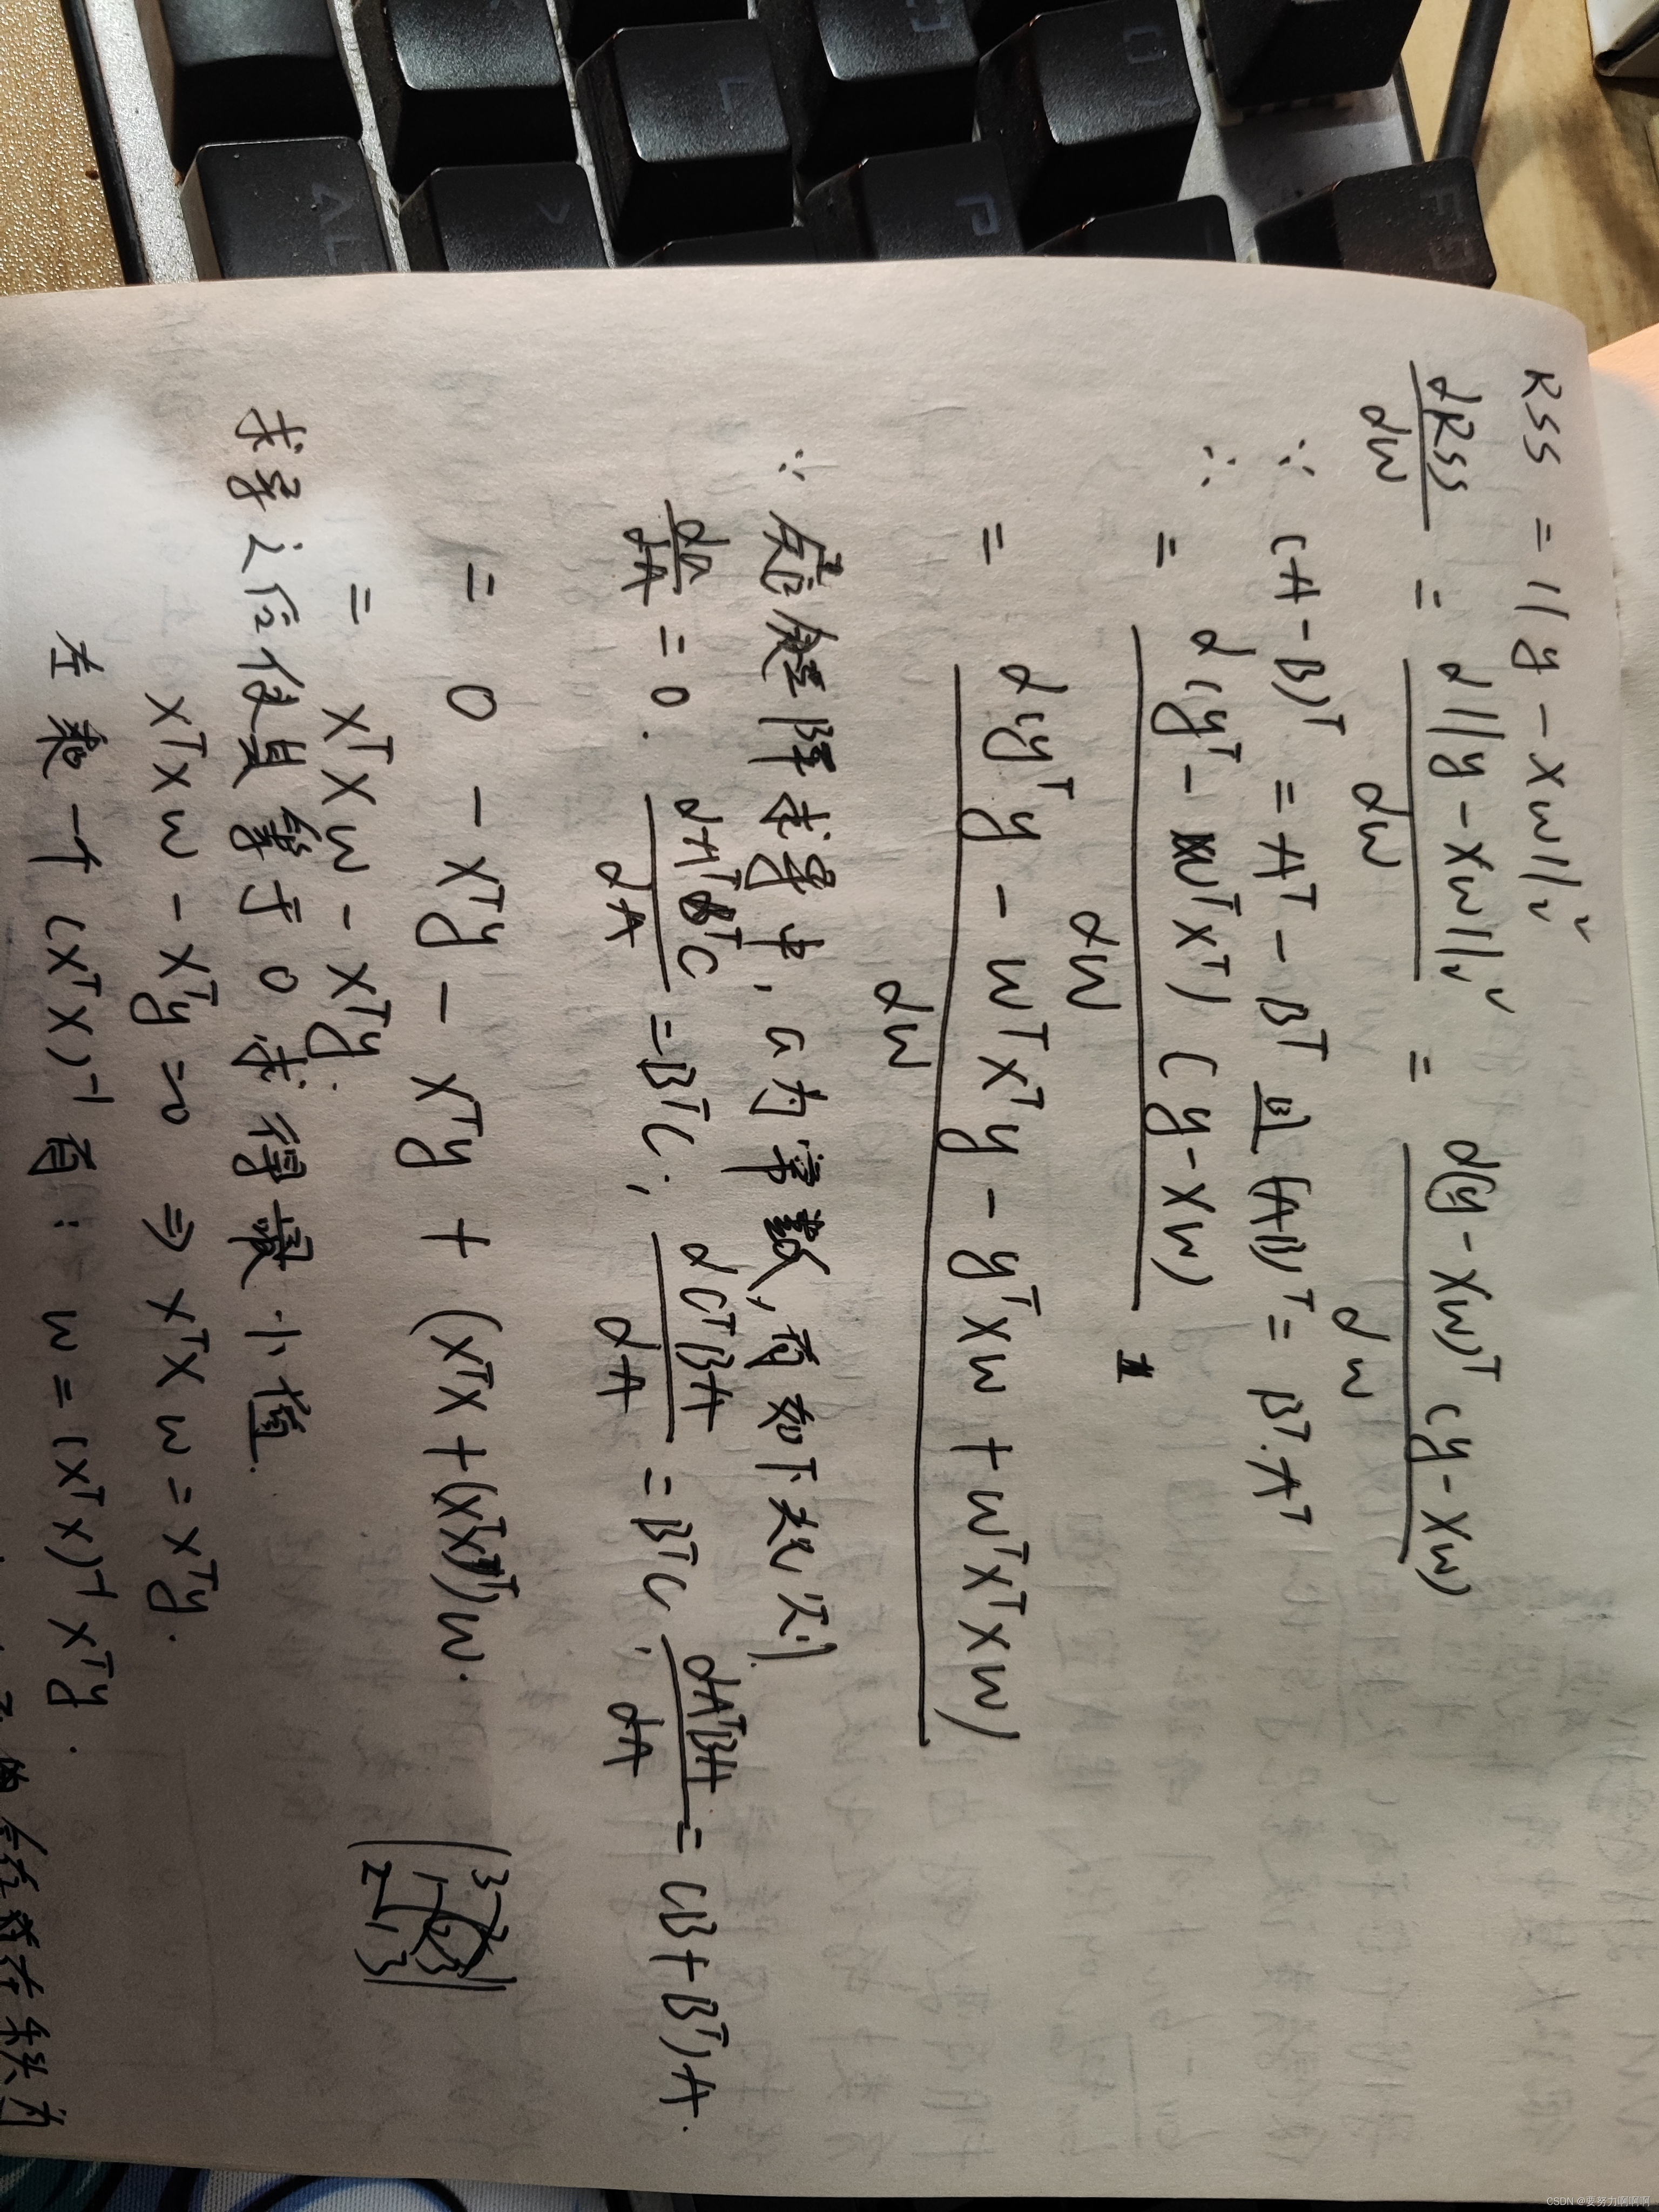 RSS = ||y - Xw||₂²
dRSS/dw = d||y - Xw||₂²/dw = d(y - Xw)ᵀ(y - Xw)/dw
∵ (A - B)ᵀ = Aᵀ - Bᵀ 且 (AB)ᵀ = Bᵀ·Aᵀ
∴ = d(yᵀ - wᵀXᵀ)(y - Xw)/dw
= d(yᵀy - wᵀXᵀy - yᵀXw + wᵀXᵀXw)/dw
∵ 矩阵求导中, a为常数, 有如下规则
da/dA = 0. dAᵀBᵀC/dA = BᵀC; dCᵀBA/dA = BᵀC; dAᵀBA/dA = (B + Bᵀ)A.
= 0 - Xᵀy - Xᵀy + (XᵀX + (XᵀX)ᵀ)w.
= XᵀXw - Xᵀy.
求导之后使其等于0求得最小值.
XᵀXw - Xᵀy = 0 ⇒ XᵀXw = Xᵀy.
左乘一个 (XᵀX)⁻¹ 有: w = (XᵀX)⁻¹Xᵀy.
F9
O
P
L
>
AL
CSDN @要努力啊啊啊